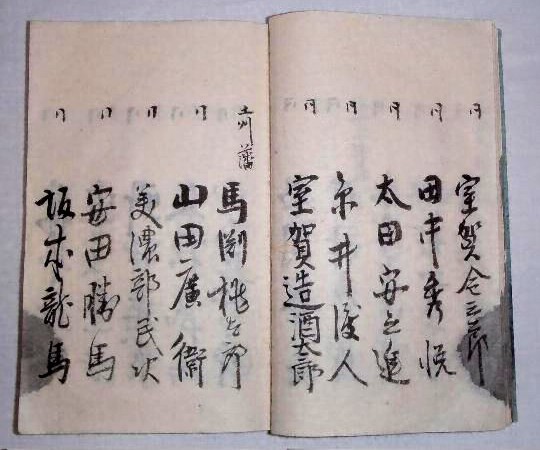 同 室賀三郎
同 田中秀悦
同 太田安之進
同 井人
同 室賀造酒太郎
土州藩 馬渕桃太郎
同 山田廣衛
同 美濃部民次
同 安田勝馬
同 坂本龍馬